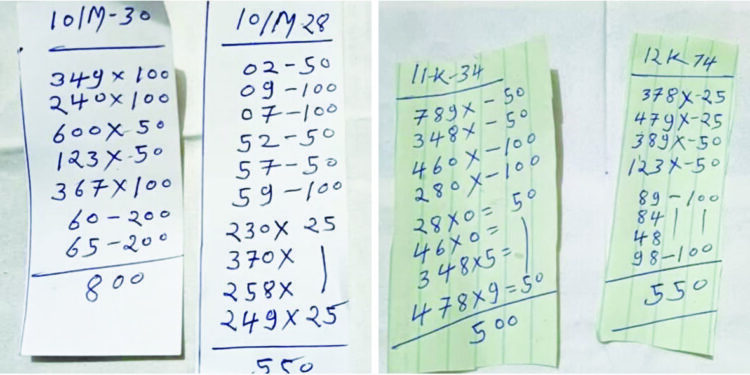 10/M-30
349x100
240x100
600x50
123x-50
367x100
60-200
65-200
800
10/M 28
02-50
09-100
07-100
52-50
57-50
59-100
230x 25
370x |
258x |
249x25
550
11-K-34
789x-50
348x-50
460x-100
280x-100
28x0= 50
46x0=
348x5=
478x9=50
500
12K 74
378x-25
479x-25
389x-50
123x-50
89-100
84 | |
48 |
98-100
550